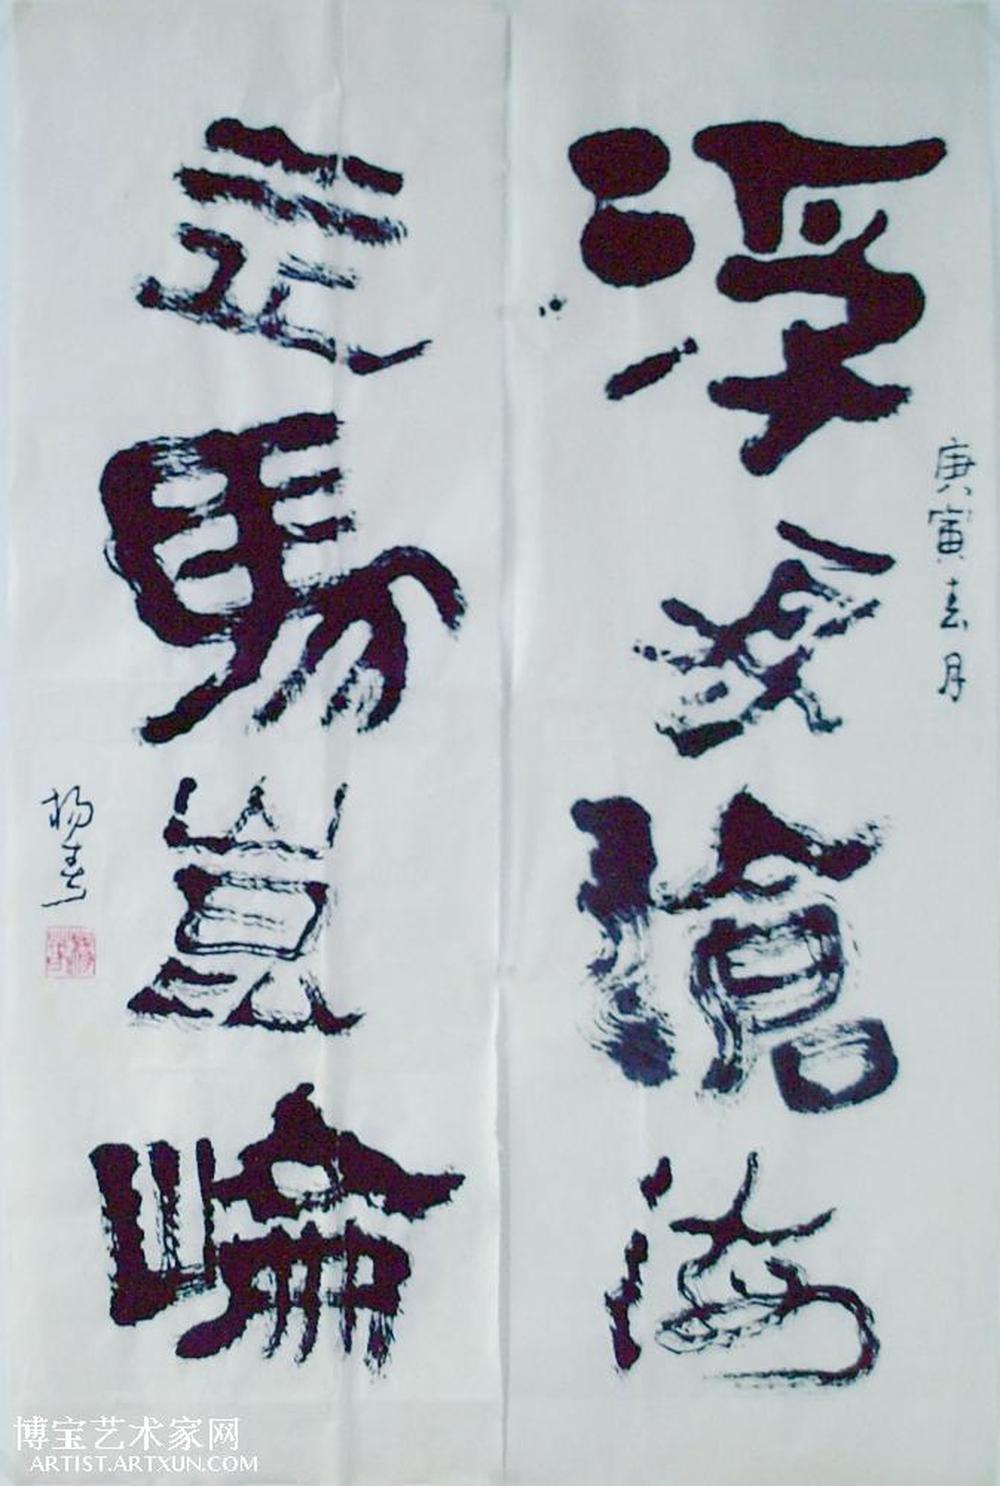 庚寅春月
浮舟滄海
立馬崑崙
杨春
博宝艺术家网
ARTIST.ARTXUN.COM